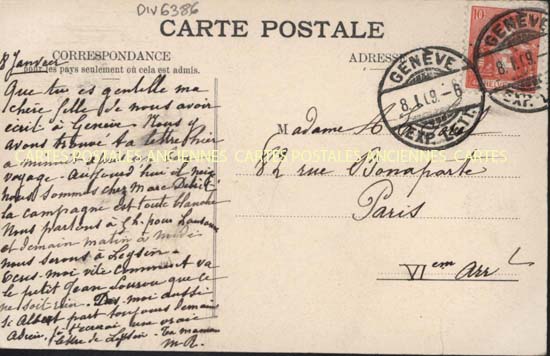 DIV6386
CARTE POSTALE
CORRESPONDANCE
pour les pays seulement où cela est admis.
ADRESSE
GENÈVE
8.I.09.-6
EXP. LETT.
GENÈVE
8.I.09.
EXP. L
10
8 Janvier
Que tu es gentille ma
chère fille de nous avoir
écrit à Genève. Nous y
avons trouvé ta lettre hier
à minuit
voyage. Aujourd'hui il neige
nous sommes chez Marc Debit
la campagne est toute blanche
Nous partons à 5 h. pour Lausanne
et demain matin à midi
nous serons à Leysin.
Ecris-moi vite comment va
le petit Jean Lourou que ce
ne soit rien. Dis moi aussi
si Albert part toujours demain
Adieu, une vraie
lettre de Leysin. Ta maman
M.R.
CARTES POSTALES ANCIENNES CARTES POSTALES ANCIENNES CARTES
Madame A.
82 rue Bonaparte
Paris
VIem Arrt